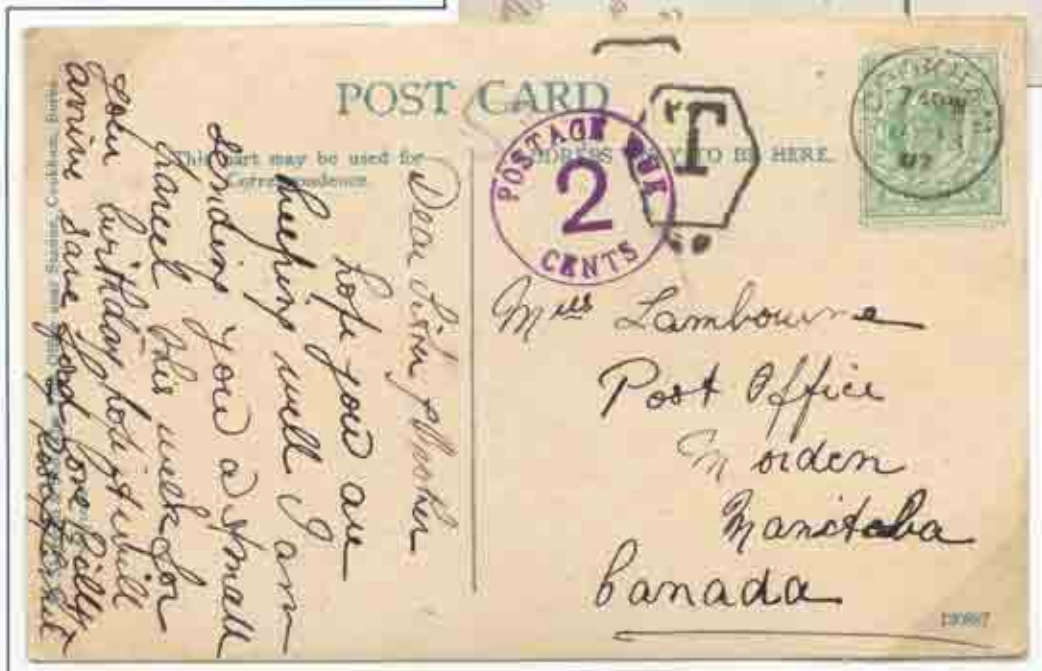 POST CARD
This part may be used for
Correspondence.
ADDRESS ONLY TO BE HERE.
POSTAGE DUE
2
CENTS
T
Dear
hope you are
keeping well I am
sending you a small
parcel this week for
your birthday hope it will
arrive safe love
Lambourne
Post Office
Morden
Manitoba
Canada
Cookham, Berks.